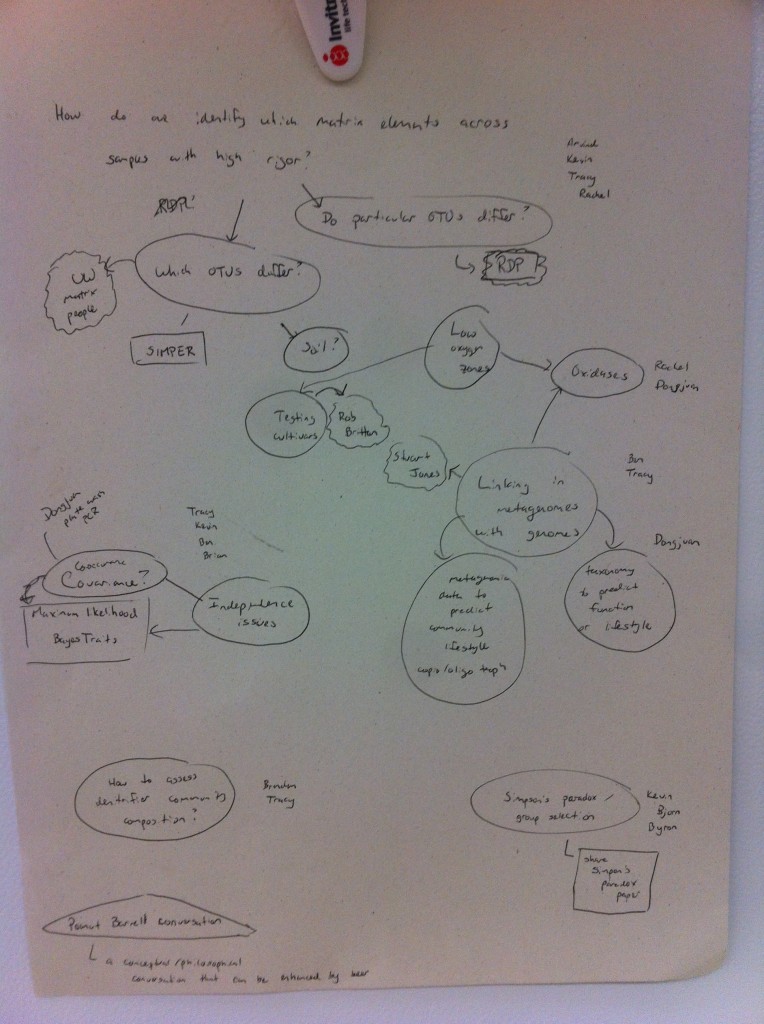 Invitro
life tec
How do we identify which matrix elements across
samples with high rigor?
Kevin
Tracy
Rachel
RDP
Do particular OTUs differ?
RDP
Which OTUs differ?
UW
matrix
people
SIMPER
Soil?
Low
oxygen
zones
Oxidases
Rachel
Dongjuan
Testing
cultivars
Rob
Britton
Stuart
Jones
Linking in
metagenomes
with genomes
Ben
Tracy
Dongjuan
plate wars
PCR
Tracy
Kevin
Ben
Brian
Cooccurance
Covariance?
Maximum likelihood
BayesTraits
Independence
issues
Dongjuan
metagenomic
data to
predict
community
lifestyle
copio/oligo troph
taxonomy
to predict
function
or lifestyle
How to assess
denitrifier community
composition?
Brendan
Tracy
Simpson's paradox/
group selection
Kevin
Bjorn
Byron
share
Simpson's
paradox
paper
Peanut Barrell conversation
a conceptual/philosophical
conversation that can be enhanced by beer